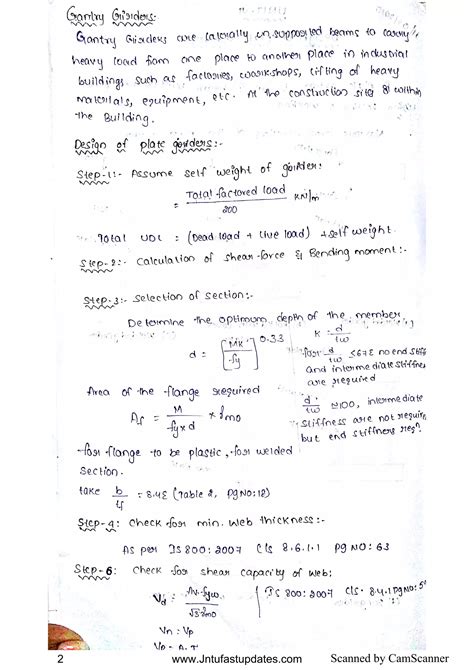 Gantry Girders:-
Gantry Girders are laterally unsupported beams to carry
heavy load from one place to another place in industrial
buildings such as factories, workshops, lifting of heavy
materials, equipment, etc. At the construction site & within
the Building.
Design of plate girders:-
Step-1:- Assume self weight of girder:
= Total factored load / 200 KN/m
Total UDL = (Dead load + Live load) + self weight
Step-2:- Calculation of shear-force & Bending moment:-
Step-3:- Selection of section:-
Determine the optimum depth of the member
d = [MK / fy]^0.33
K = d/tw
for d/tw ≤67ε no end stiff
and intermediate stiffnes
are required
Area of the flange required
Af = M / fy×d × γmo
d/tw ≈100, intermediate
stiffness are not require
but end stiffners req?
for flange to be plastic, for welded
section.
take b/tf = 8.4ε (Table 2, pgNO:18)
Step-4: Check for min. web thickness:-
As per IS 800:2007 Cls 8.6.1.1 pg NO: 63
Step-6: Check for shear capacity of web:
Vd = Av.fyw / √3 γmo
IS 800:2007 Cls. 8.4.1 pgNO:
Vn = Vp
2 www.Jntufastupdates.com Scanned by CamScanner